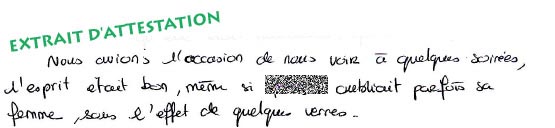 EXTRAIT D'ATTESTATION
Nous avions l'occasion de nous voir à quelques soirées,
l'esprit etait bon, même si oubliait parfois sa
femme, sous l'effet de quelques verres.